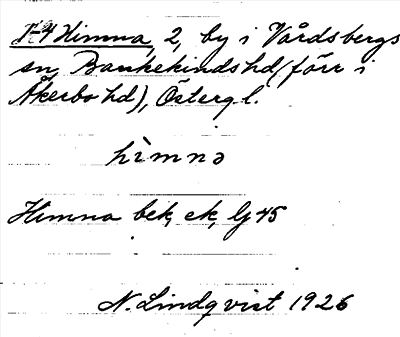 1-4 Himna, 2, by i Vårdsbergs
sn, Bankekinds hd (förr i
Åkerbo hd), Östergl.
hìmnə
Himna bek, ek, lj 45
N. Lindqvist 1926